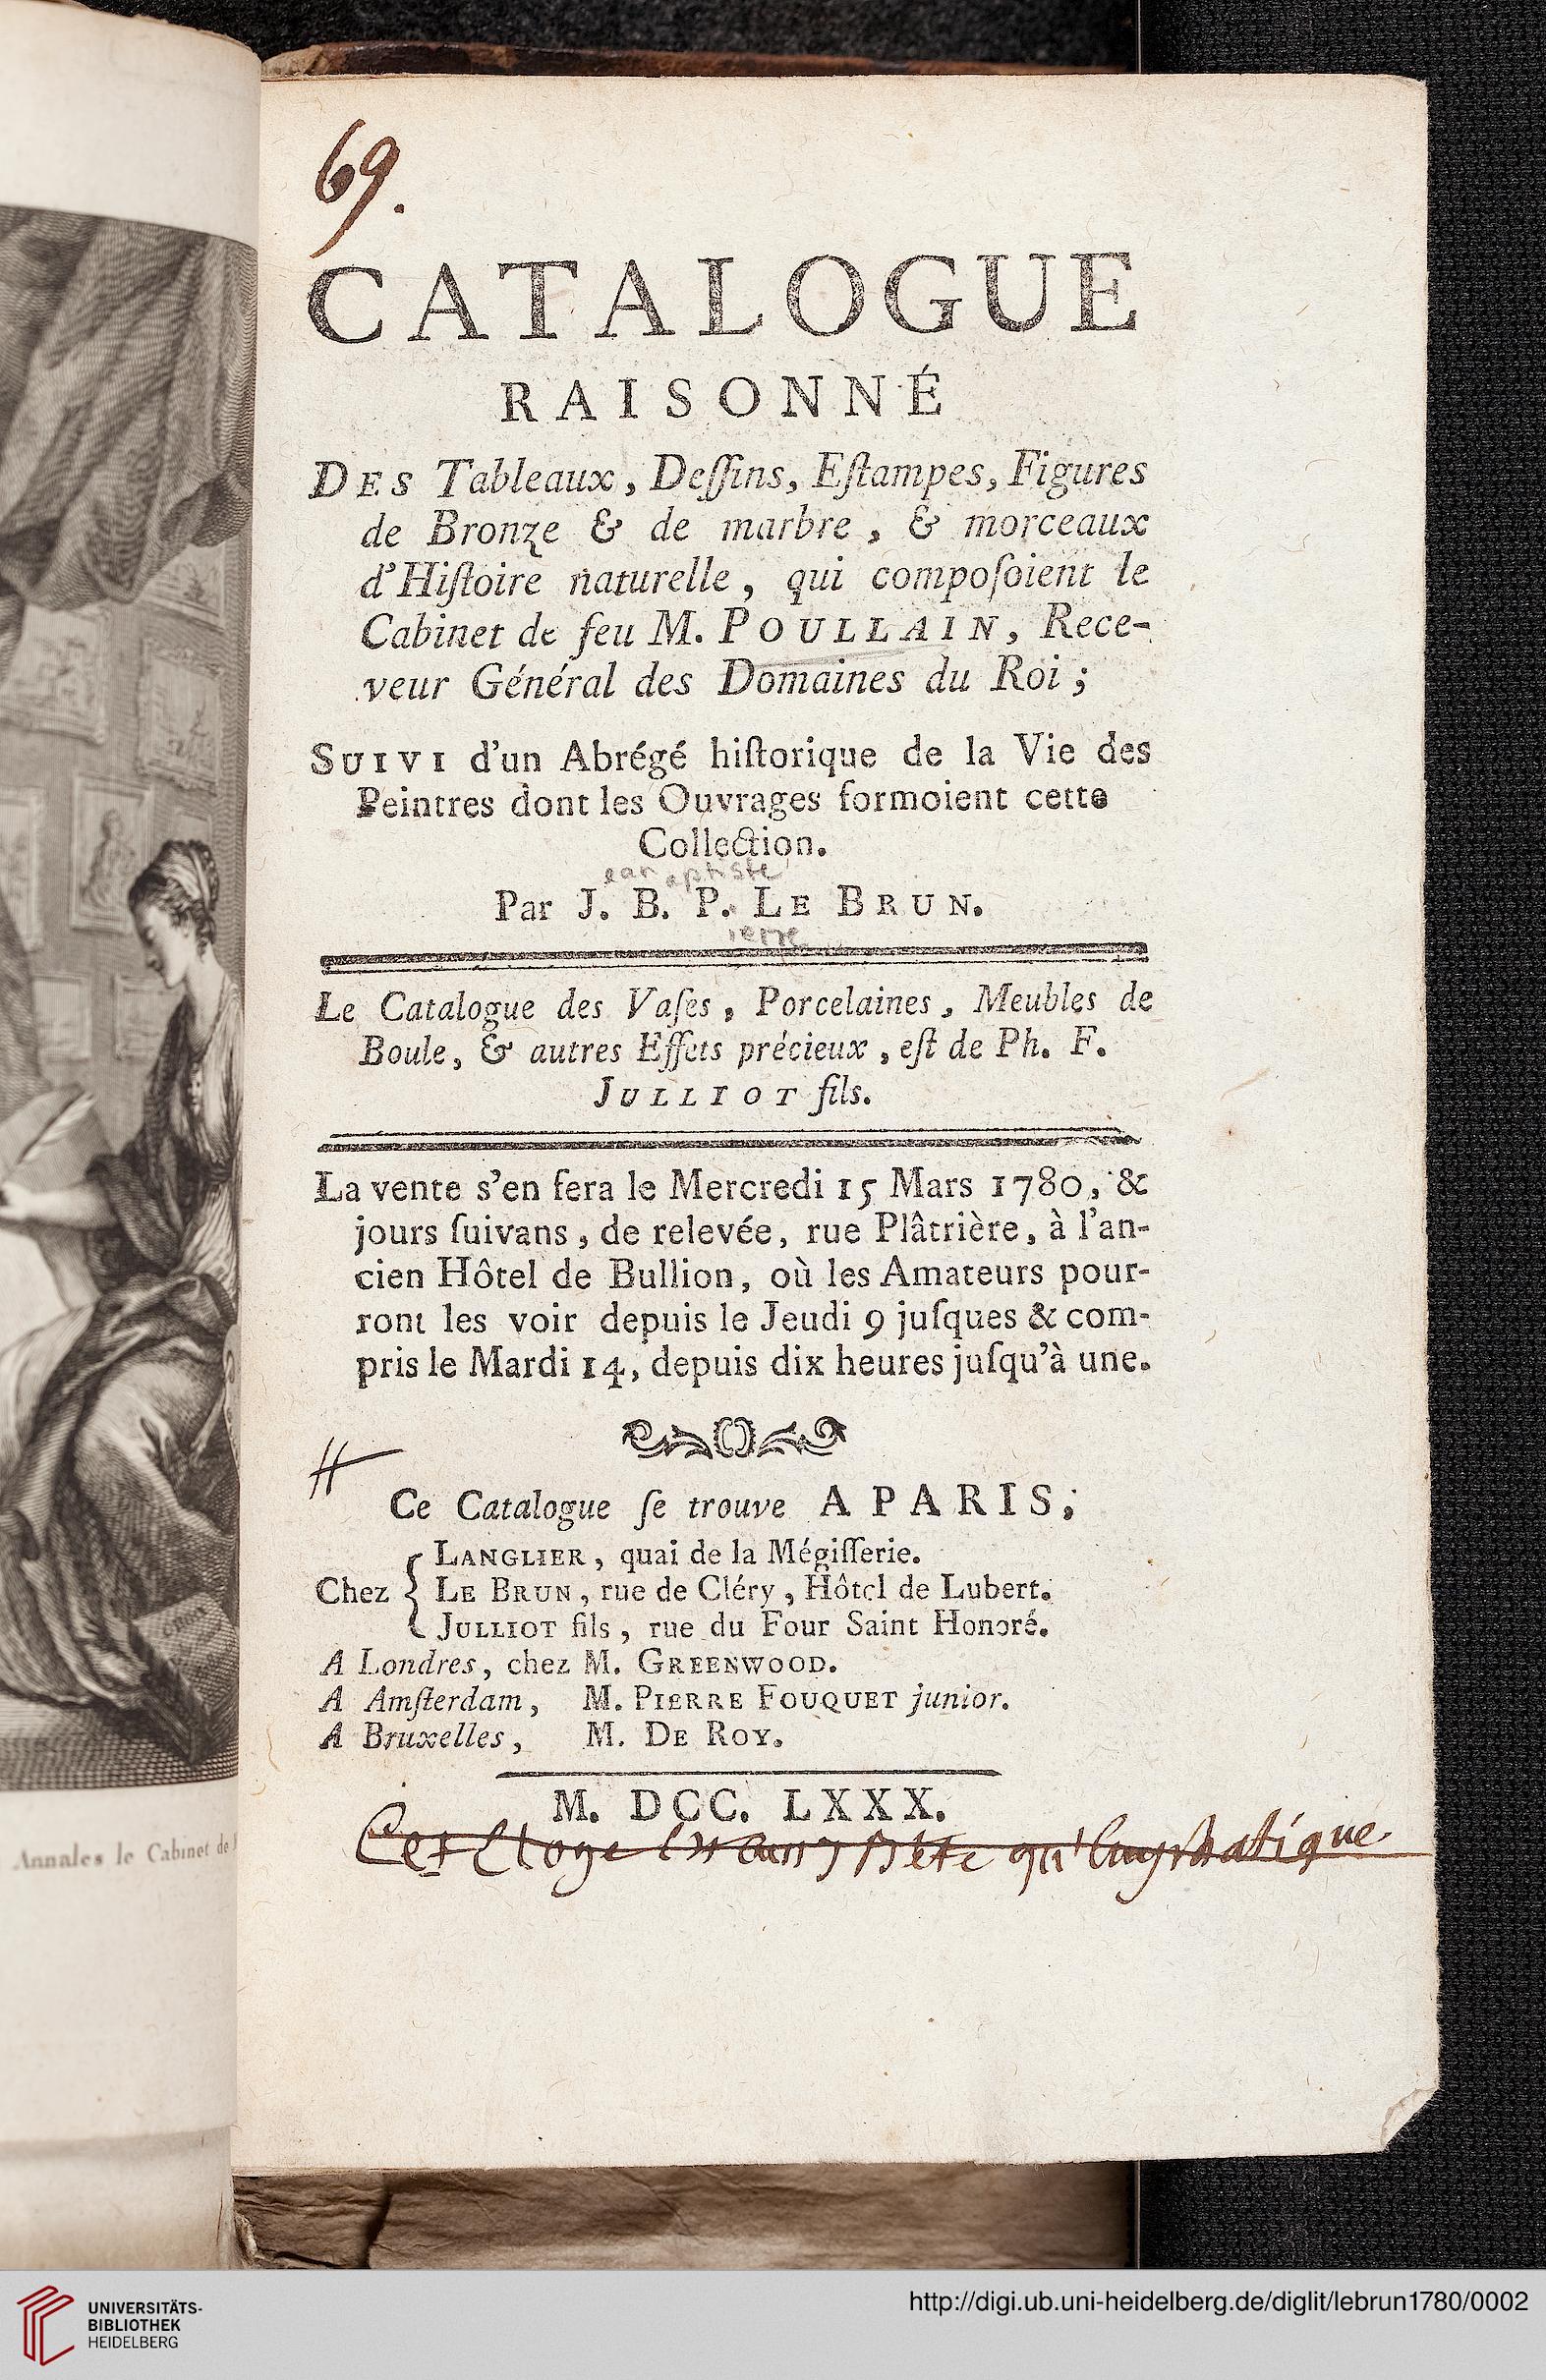 69.
CATALOGUE
RAISONNÉ
DES Tableaux, Deſſins, Eſtampes, Figures
de Bronze & de marbre, & morceaux
d'Hiſtoire naturelle, qui compoſoient le
Cabinet de feu M. POULLAIN, Rece-
veur Général des Domaines du Roi;
SUIVI d'un Abrégé hiſtorique de la Vie des
Peintres dont les Ouvrages formoient cette
Collection.
ean aptiste
Par J. B. P. LE BRUN.
ierre
Le Catalogue des Vaſes, Porcelaines, Meubles de
Boule, & autres Effets précieux, eſt de Ph. F.
JULLIOT fils.
La vente s'en fera le Mercredi 15 Mars 1780, &
jours ſuivans, de relevée, rue Plâtrière, à l'an-
cien Hôtel de Bullion, où les Amateurs pour-
ront les voir depuis le Jeudi 9 juſques & com-
pris le Mardi 14, depuis dix heures juſqu'à une.
Ce Catalogue ſe trouve A PARIS;
Chez
LANGLIER, quai de la Mégiſſerie.
LE BRUN, rue de Cléry, Hôtel de Lubert.
JULLIOT fils, rue du Four Saint Honoré.
A Londres, chez M. GREENWOOD.
A Amſterdam, M. PIERRE FOUQUET junior.
A Bruxelles, M. DE ROY.
M. DCC. LXXX.
Annales le Cabinet de
UNIVERSITÄTS-
BIBLIOTHEK
HEIDELBERG
http://digi.ub.uni-heidelberg.de/diglit/lebrun1780/0002